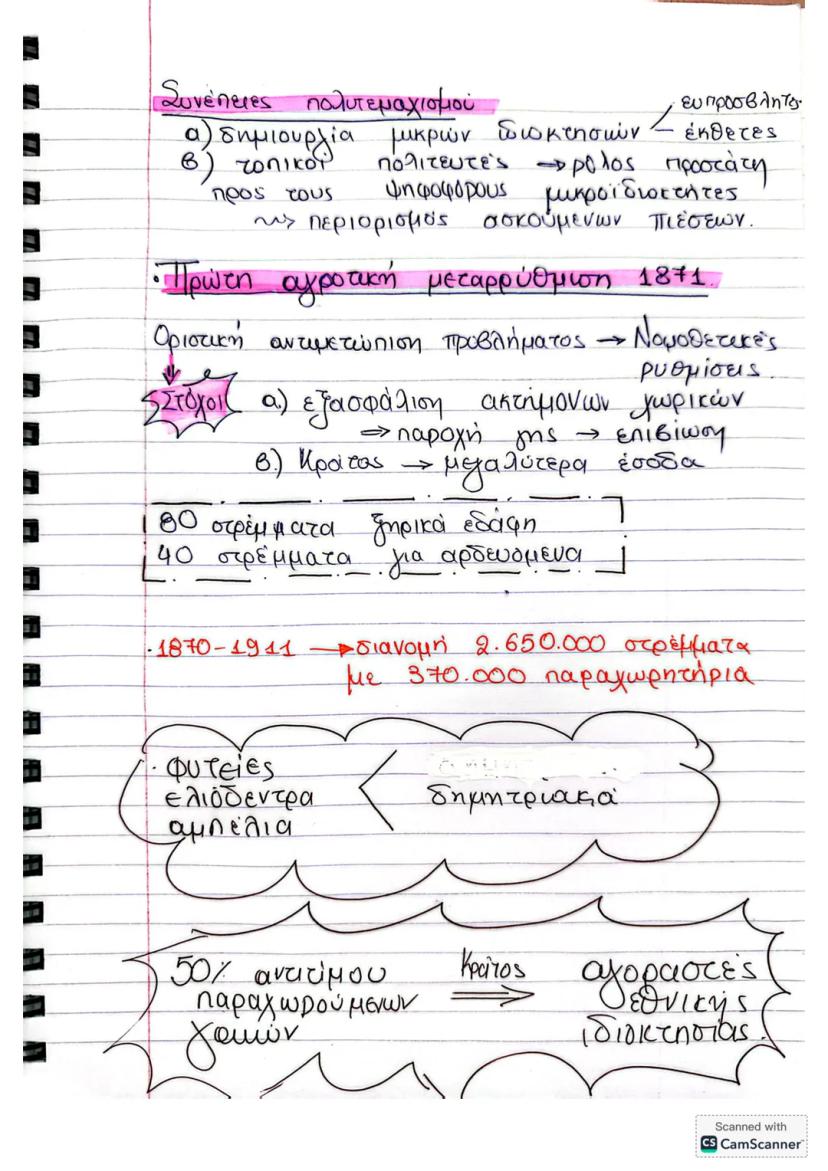 Συνέπειες πολυτεμαχισμού
ευπρόσβλητες
α) δημιουργία μικρών ιδιοκτησιών — έκθετες
β) τοπικοί πολιτευτές → ρόλος προστάτη
προς τους ψηφοφόρους μικροϊδιοκτήτες
~~> περιορισμός ασκούμενων πιέσεων.
· Πρώτη αγροτική μεταρρύθμιση 1871.
Οριστική αντιμετώπιση προβλήματος → Νομοθετικές
ρυθμίσεις.
Στόχοι α.) εξασφάλιση ακτημόνων χωρικών
⇒ παροχή γης → επιβίωση
β.) Κράτος → μεγαλύτερα έσοδα
80 στρέμματα ξηρικά εδάφη
40 στρέμματα για αρδευόμενα
· 1870-1911 → διανομή 2.650.000 στρέμματα
με 370.000 παραχωρητήρια
· φυτείες
ελιόδεντρα < δημητριακά
αμπέλια
50% αντιτίμου Κράτος αγοραστές
παραχωρούμενων ⇒ εθνικής
γαιών ιδιοκτησίας.
Scanned with
CS CamScanner